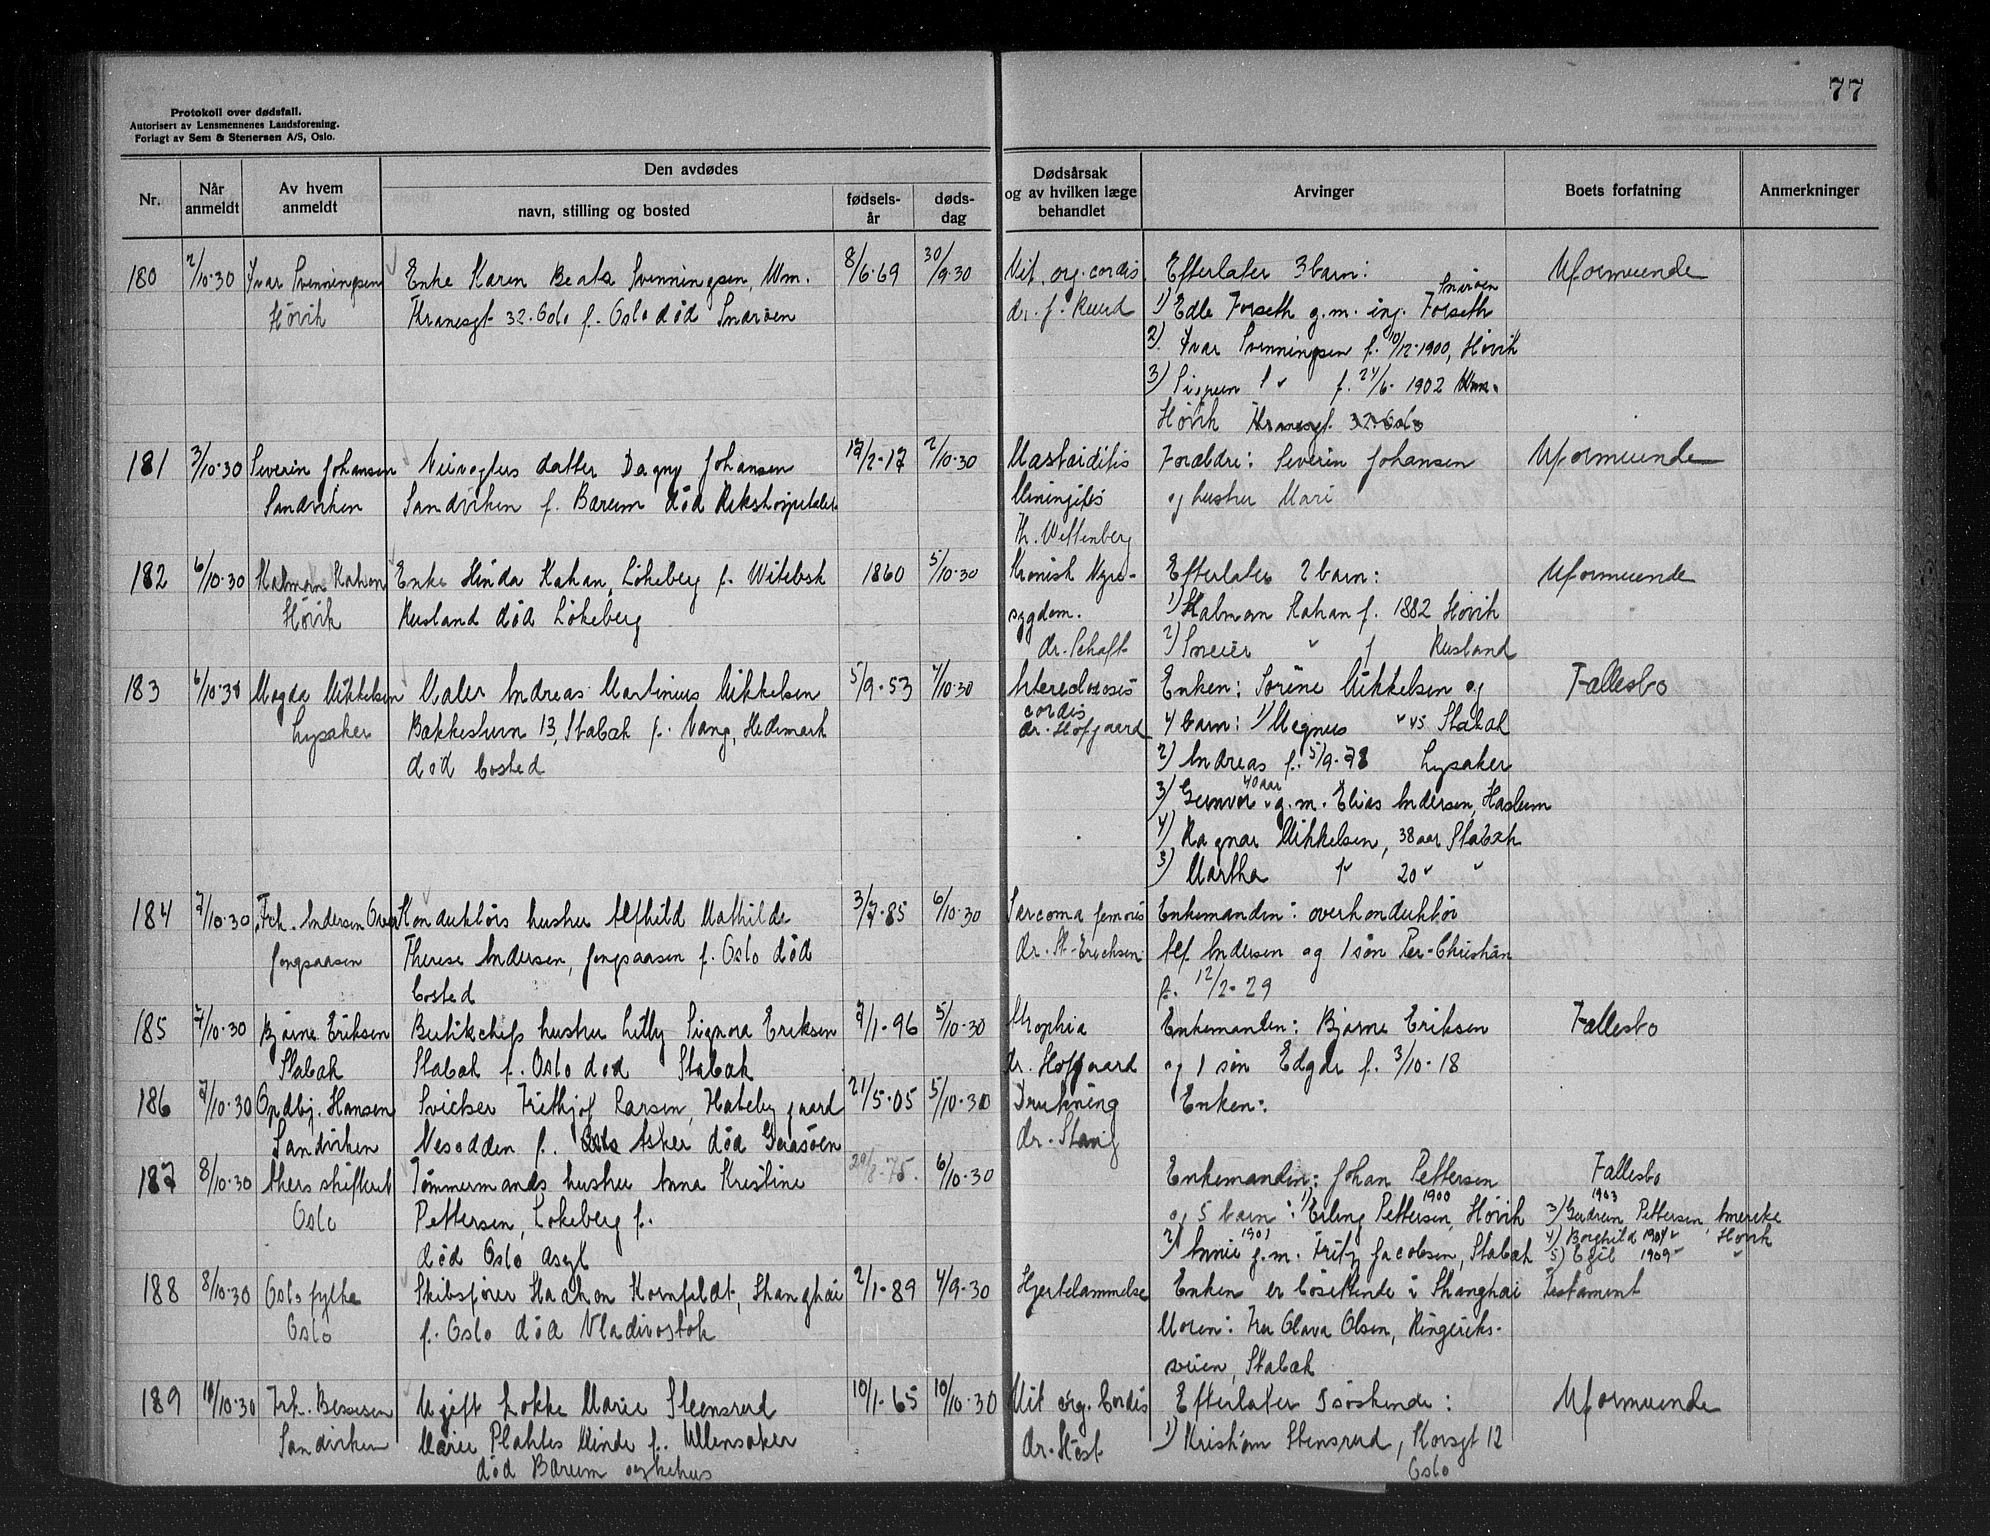 77
Protokoll over dødsfall.
Autorisert av Lensmennenes Landsforening.
Forlagt av Sem & Stenersen A/S, Oslo.
Nr.
Når anmeldt
Av hvem anmeldt
Den avdødes
navn, stilling og bosted
fødsels-år
døds-dag
Dødsårsak og av hvilken læge behandlet
Arvinger
Boets forfatning
Anmerkninger
180 2/10-30 Ivar Svenningsen Enke Karen Beate Svenningsen, Wm. 8/6-69 30/9-30 Vit. org. cordis Efterlater 3 barn: Uformuende
Høvik Thranesgt 32. Oslo f. Oslo død Snarøen dr. f. Ruud 1) Edle Forseth g.m. ing. Forseth Snarøen
2) Ivar Svenningsen f. 10/12-1900, Høvik
3) Signeun " f. 24/6-1902 Wm.
Høvik Thranesgt. 32 Oslo
181 3/10-30 Severin Johansen datter Dagny Johansen 17/2-17 2/10-30 Mastoiditis Forældre: Severin Johansen Uformuende
Sandviken Sandviken f. Bærum død Rikshospitalet Miningitis og hustru Mari
Th. Wettenberg
182 6/10-30 Kalman Kahan Enke Hinda Kahan, Løkeberg f. Witebsk 1860 5/10-30 Kronisk Nyre- Efterlater 2 barn: Uformuende
Høvik Rusland død Løkeberg sygdom. 1) Kalman Kahan f. 1882 Høvik
dr. Schaft 2) Smeier " f Rusland
183 6/10-30 Magda Mikkelsen Maler Andreas Martinius Mikkelsen 5/9-53 4/10-30 cordis Enken: Sørine Mikkelsen og Fællesbo
Lysaker Bakkestuen 13, Stabæk f. Vang, Hedemark dr. Hofgaard 4 barn: 1) Magnus " 45 Stabæk
død bosted 2) Andreas f. 5/9-78 Lysaker
3) Gunvor 40 aar g.m. Elias Andersen, Haslum
4) Ragnar Mikkelsen, 38 aar Stabæk
3) Martha " 20 " "
184 7/10-30 Frk. Andersen Konduktørs hustru Alfhild Mathilde 3/7-85 6/10-30 Sarcoma femoris Enkemanden: overkonduktør
Jongsaasen Therese Andersen, Jongsaasen f. Oslo død dr. St-Erichsen Alf Andersen og 1 søn Per-Christian
bosted f. 12/2-29
185 7/10-30 Bjarne Eriksen Butikchefs hustru Lilly Signora Eriksen 7/1-96 5/10-30 Enkemanden: Bjarne Eriksen Fællesbo
Stabæk Stabæk f. Oslo død Stabæk dr. Hofgaard og 1 søn Edgar f. 3/10-18
186 7/10-30 Opdbj. Hansen Fritkjof Larsen, Hateby gaard 21/5-05 5/10-30 Drukning Enken:
Sandviken Nesodden f. Asker død Geitøen dr.
187 8/10-30 Akers skifterett Tømmermands hustru Anna Kristine 29/8-75. 6/10-30 Enkemanden: Johan Pettersen Fællesbo
Oslo Pettersen, Løkeberg f. og 5 barn: 1) Erling Pettersen, 1900 Høvik 3) Gudrun Pettersen, 1903 Amerika
død Oslo asyl 2) Annie 1901 g.m. Fritz Jacobsen, Stabæk 4) Borghild 1907 " Høvik
5) Egil 1909 " "
188 8/10-30 Oslo fylke Skibsfører Haakon Kornfeldt, Shanghai 2/1-89 4/9-30 Hjertelammelse Enken er bosittende i Shanghai Testament
Oslo f. Oslo død Vladivostok Moren: Fru Olava Olsen, Ringeriks-
veien, Stabæk
189 11/10-30 Frk. Bessesen Ugift Lokke Marie Steensrud 10/1-65 10/10-30 Vit. org. Cordis Efterlater søskende: Uformuende
Sandviken Marie Plahtes Minde f. Ullensaker dr. Høst 1) Kristian Stensrud, Korsgt 12
død Bærum sykehus Oslo